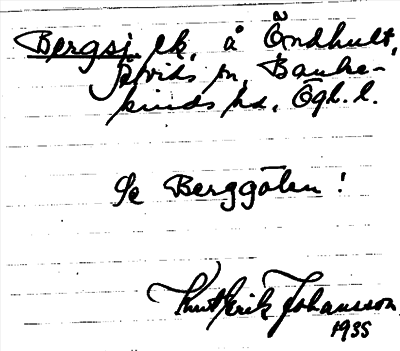 Bergsj. ek. å Öndhult,
Grvids sn, Banke-
kinds hd, Ögl. l.
Se Berggölen!
Knut Erik Johansson
1935